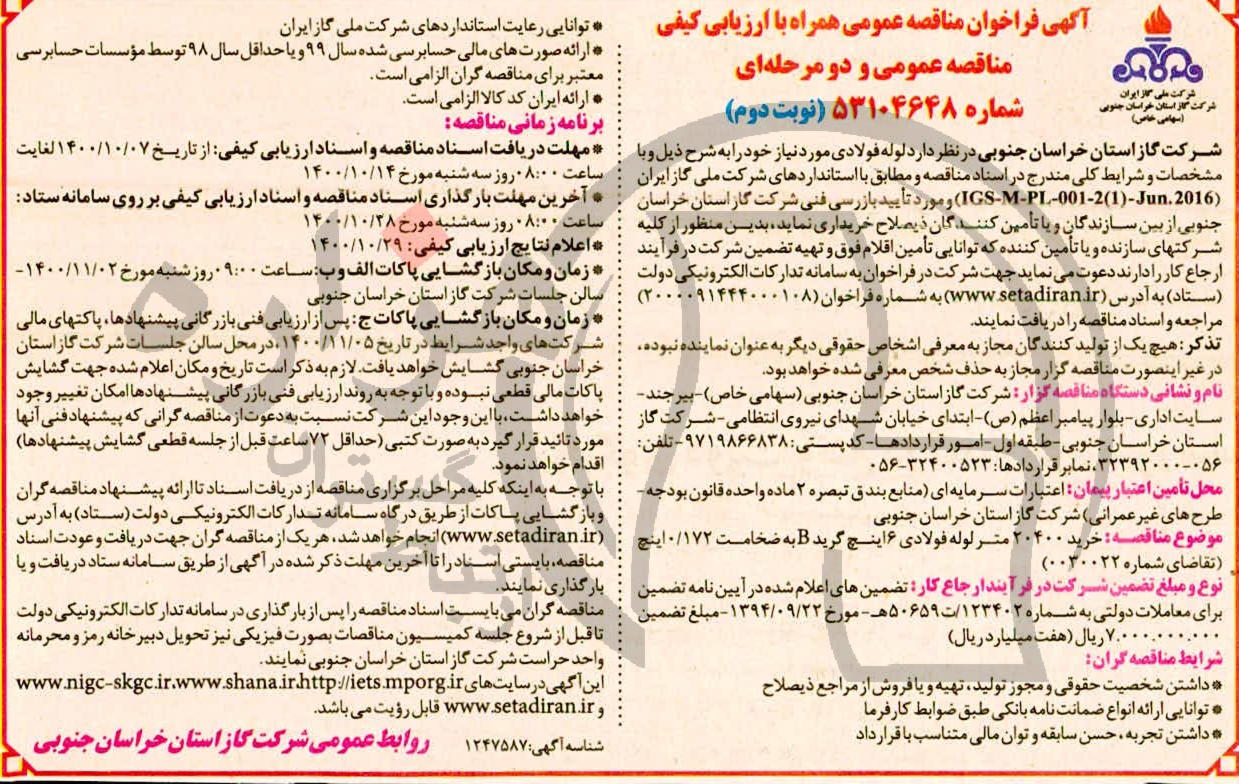 آگهی فراخوان مناقصه عمومی همراه با ارزیابی کیفی
مناقصه عمومی و دو مرحله‌ای
شماره ۵۳۱۰۴۶۴۸ (نوبت دوم)
شرکت ملی گاز ایران
شرکت گاز استان خراسان جنوبی
(سهامی خاص)
شرکت گاز استان خراسان جنوبی در نظر دارد لوله فولادی مورد نیاز خود را به شرح ذیل و با
مشخصات و شرایط کلی مندرج در اسناد مناقصه و مطابق با استانداردهای شرکت ملی گاز ایران
(IGS-M-PL-001-2(1)-Jun.2016) و مورد تأیید بازرسی فنی شرکت گاز استان خراسان
جنوبی از بین سازندگان و یا تأمین کنندگان ذیصلاح خریداری نماید، بدین منظور از کلیه
شرکتهای سازنده و یا تأمین کننده که توانایی تأمین اقلام فوق و تهیه تضمین شرکت در فرآیند
ارجاع کار را دارند دعوت می نماید جهت شرکت در فراخوان به سامانه تدارکات الکترونیکی دولت
(ستاد) به آدرس (www.setadiran.ir) به شماره فراخوان (۲۰۰۰۰۹۱۴۴۴۰۰۰۱۰۸)
مراجعه و اسناد مناقصه را دریافت نمایند.
تذکر: هیچ یک از تولید کنندگان مجاز به معرفی اشخاص حقوقی دیگر به عنوان نماینده نبوده،
در غیر اینصورت مناقصه گزار مجاز به حذف شخص معرفی شده خواهد بود.
نام و نشانی دستگاه مناقصه گزار: شرکت گاز استان خراسان جنوبی (سهامی خاص)-بیرجند-
سایت اداری-بلوار پیامبر اعظم (ص)-ابتدای خیابان شهدای نیروی انتظامی-شرکت گاز
استان خراسان جنوبی-طبقه اول-امور قراردادها-کدپستی: ۹۷۱۹۸۶۶۸۳۸-تلفن:
۰۵۶-۳۲۳۹۲۰۰۰، نمابر قراردادها: ۳۲۴۰۰۵۲۳-۰۵۶
محل تأمین اعتبار پیمان: اعتبارات سرمایه ای (منابع بند ق تبصره ۲ ماده واحده قانون بودجه-
طرح های غیر عمرانی) شرکت گاز استان خراسان جنوبی
موضوع مناقصه: خرید ۲۰۴۰۰ متر لوله فولادی ۶ اینچ گرید B به ضخامت ۰/۱۷۲ اینچ
(تقاضای شماره ۰۰۳۰۰۲۲)
نوع و مبلغ تضمین شرکت در فرآیند ارجاع کار: تضمین های اعلام شده در آیین نامه تضمین
برای معاملات دولتی به شماره ۱۲۳۴۰۲/ت۵۰۶۵۹هـ- مورخ ۱۳۹۴/۰۹/۲۲-مبلغ تضمین
۷.۰۰۰.۰۰۰.۰۰۰ ریال (هفت میلیارد ریال)
شرایط مناقصه گران:
* داشتن شخصیت حقوقی و مجوز تولید، تهیه و یا فروش از مراجع ذیصلاح
* توانایی ارائه انواع ضمانت نامه بانکی طبق ضوابط کارفرما
* داشتن تجربه، حسن سابقه و توان مالی متناسب با قرارداد
* توانایی رعایت استانداردهای شرکت ملی گاز ایران
* ارائه صورت های مالی حسابرسی شده سال ۹۹ و یا حداقل سال ۹۸ توسط مؤسسات حسابرسی
معتبر برای مناقصه گران الزامی است.
* ارائه ایران کد کالا الزامی است.
برنامه زمانی مناقصه:
* مهلت دریافت اسناد مناقصه و اسناد ارزیابی کیفی: از تاریخ ۱۴۰۰/۱۰/۰۷ لغایت
ساعت ۰۸:۰۰ روز سه شنبه مورخ ۱۴۰۰/۱۰/۱۴
* آخرین مهلت بارگذاری اسناد مناقصه و اسناد ارزیابی کیفی بر روی سامانه ستاد:
ساعت ۰۸:۰۰ روز سه شنبه مورخ ۱۴۰۰/۱۰/۲۸
* اعلام نتایج ارزیابی کیفی: ۱۴۰۰/۱۰/۲۹
* زمان و مکان بازگشایی پاکات الف و ب: ساعت ۰۹:۰۰ روز شنبه مورخ ۱۴۰۰/۱۱/۰۲-
سالن جلسات شرکت گاز استان خراسان جنوبی
* زمان و مکان بازگشایی پاکات ج: پس از ارزیابی فنی بازرگانی پیشنهادها، پاکتهای مالی
شرکت های واجد شرایط در تاریخ ۱۴۰۰/۱۱/۰۵، در محل سالن جلسات شرکت گاز استان
خراسان جنوبی گشایش خواهد یافت. لازم به ذکر است تاریخ و مکان اعلام شده جهت گشایش
پاکات مالی قطعی نبوده و با توجه به روند ارزیابی فنی بازرگانی پیشنهادها امکان تغییر وجود
خواهد داشت، با این وجود این شرکت نسبت به دعوت از مناقصه گرانی که پیشنهاد فنی آنها
مورد تائید قرار گیرد به صورت کتبی (حداقل ۷۲ ساعت قبل از جلسه قطعی گشایش پیشنهادها)
اقدام خواهد نمود.
با توجه به اینکه کلیه مراحل برگزاری مناقصه از دریافت اسناد تا ارائه پیشنهاد مناقصه گران
و بازگشایی پاکات از طریق درگاه سامانه تدارکات الکترونیکی دولت (ستاد) به آدرس
(www.setadiran.ir) انجام خواهد شد، هر یک از مناقصه گران جهت دریافت و عودت اسناد
مناقصه، بایستی اسناد را تا آخرین مهلت ذکر شده در آگهی از طریق سامانه ستاد دریافت و یا
بارگذاری نمایند.
مناقصه گران می بایست اسناد مناقصه را پس از بارگذاری در سامانه تدارکات الکترونیکی دولت
تا قبل از شروع جلسه کمیسیون مناقصات بصورت فیزیکی نیز تحویل دبیرخانه رمز و محرمانه
واحد حراست شرکت گاز استان خراسان جنوبی نمایند.
این آگهی در سایت های www.nigc-skgc.ir.www.shana.ir.http://iets.mporg.ir
و www.setadiran.ir قابل رؤیت می باشد.
شناسه آگهی: ۱۲۴۷۵۸۷
روابط عمومی شرکت گاز استان خراسان جنوبی